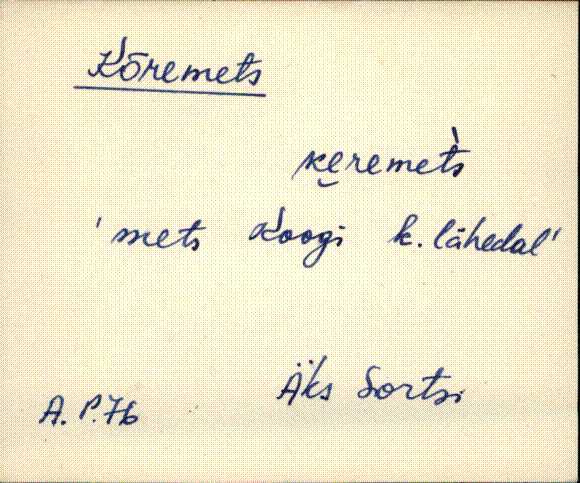 Kõremets
ke̮remet̀s
'mets Koogi k. lähedal'
Äks Sortsi
A. P. 76